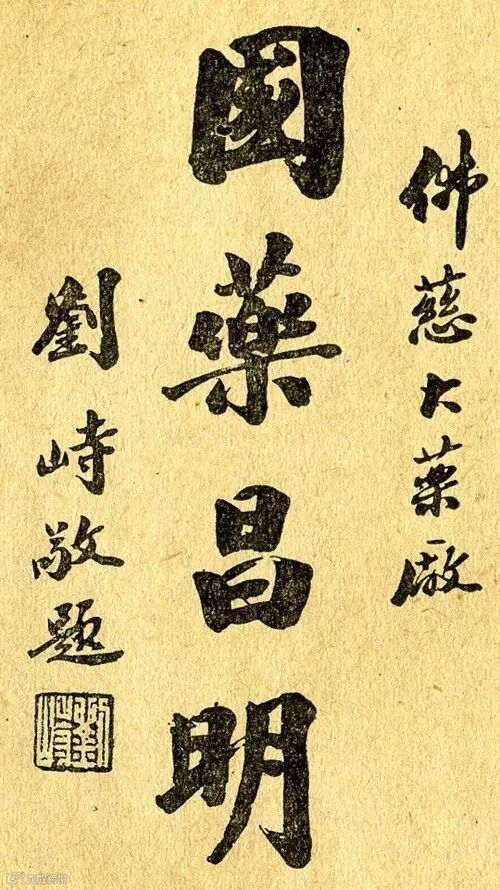 佛慈大藥廠
國藥昌明
劉峙敬題
劉峙